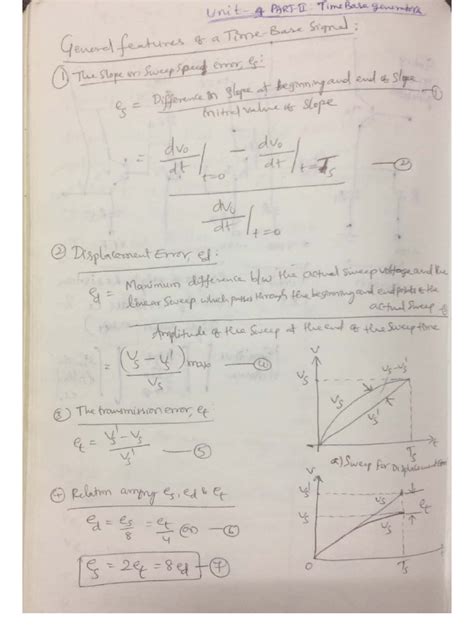 Unit-4 PART-II - Time Base generators
General features of a Time-Base Signal:
① The slope or Sweep Speed error, es:
es = Difference in slope at beginning and end of slope / Initial value of slope —①
= (dv0/dt |t=0 − dv0/dt |t=Ts) / (dv0/dt |t=0) —②
② Displacement Error, ed:
ed = Maximum difference b/w the actual sweep voltage and the
linear sweep which passes through the beginning and end points of the
actual sweep
Amplitude of the sweep at the end of the sweep time
= (Vs − Vs')max / Vs —④
③ The transmission error, et
et = (Vs' − Vs) / Vs' —⑤
④ Relation among es, ed & et
ed = es/8 = et/4 (or) —⑥
es = 2et = 8ed —⑦
V
Vs
vs-vs'
vs
vs'
t
Ts
a) Sweep for Displacement
V
Vs'
Vs
vs'
vs
et
0
Ts
t